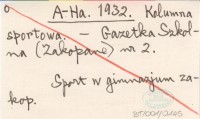 A-Ha. 1932. Kolumna
sportowa. – Gazetka Szkol-
na (Zakopane) nr 2.
Sport w gimnazjum za-
kop.